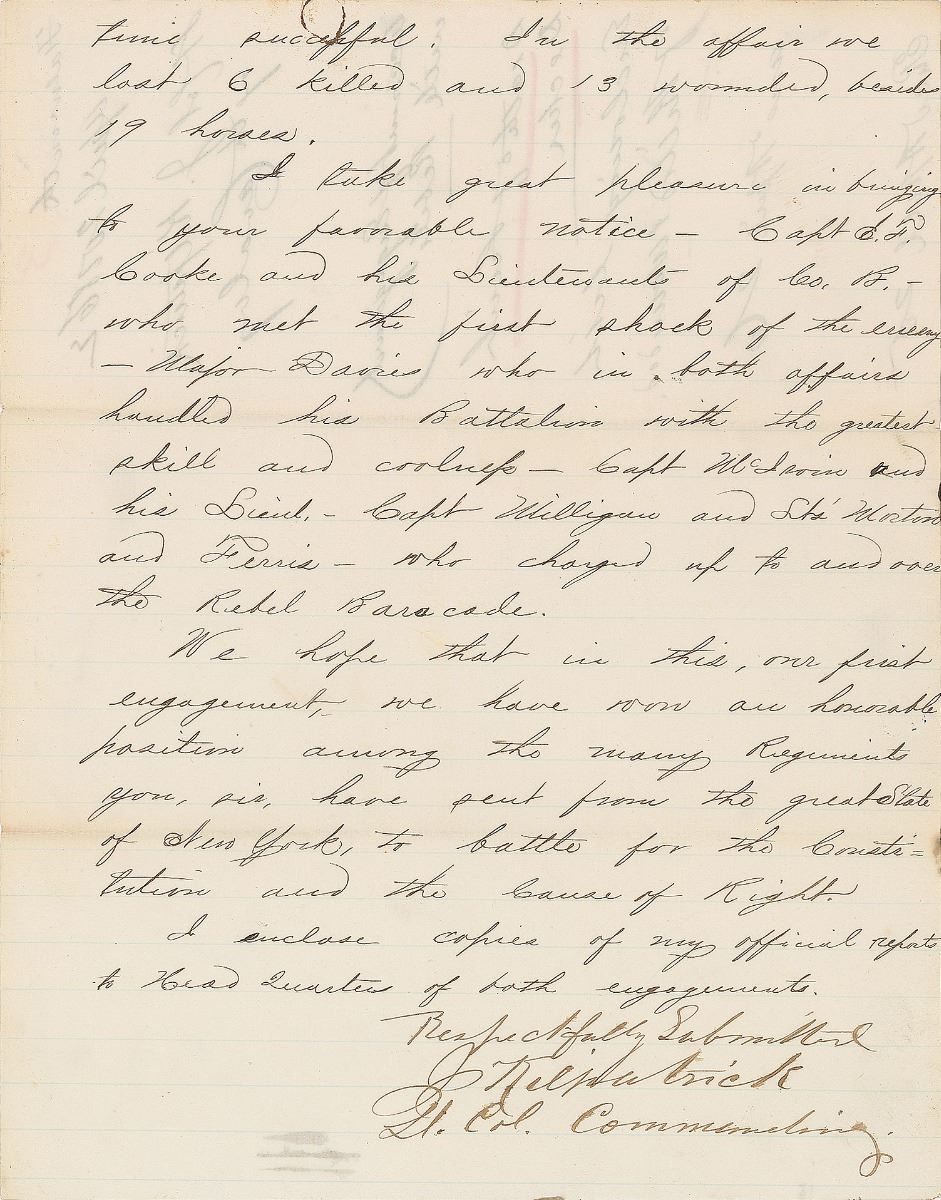 time successful. In the affair we
lost 6 killed and 13 wounded, besides
19 horses.
I take great pleasure in bringing
to your favorable notice – Capt E. F.
Cooke and his Lieutenants of Co. B. –
who met the first shock of the enemy
– Major Davies who in both affairs
handled his Battalion with the greatest
skill and coolness – Capt McIrvin and
his Lieut. – Capt Milligan and Lts' Morton
and Ferris – who charged up to and over
the Rebel Baracade.
We hope that in this, our first
engagement, we have won an honorable
position among the many Regiments
you, sir, have sent from the great State
of New York, to battle for the Consti=
tution and the Cause of Right.
I enclose copies of my official reports
to Head Quarters of both engagements.
Respectfully Submitted
J Kilpatrick
Lt. Col. Commanding.